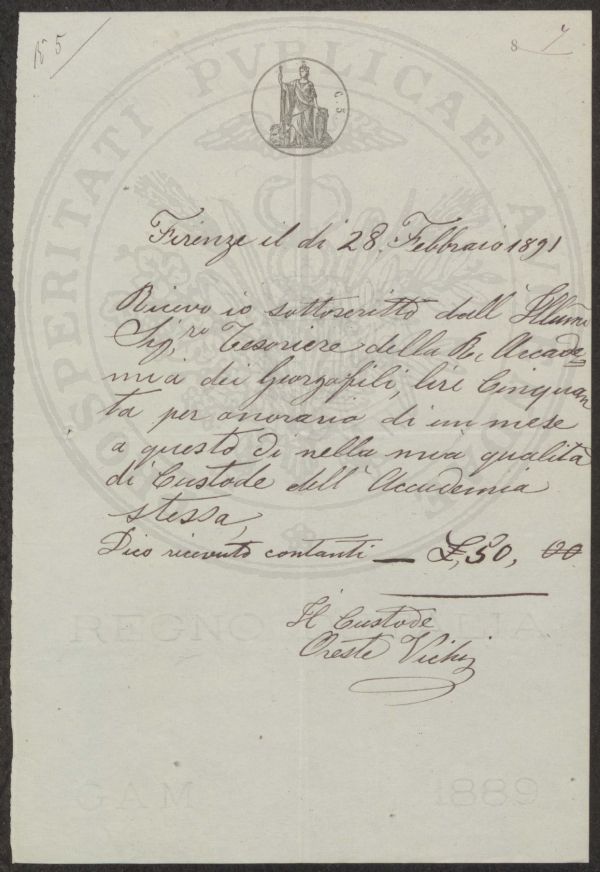 N° 5
8 7
PROSPERITATI PUBLICAE AUGENDAE
C. 5
Firenze il di 28. Febbraio 1891
Ricevo io sottoscritto dall' Illumo
Sig,ro Tesoriere della R. Accade=
mia dei Georgofili, lire Cinquan
ta per onorario di un mese
a questo di nella mia qualità
di Custode dell' Accademia
stessa,
Dico ricevuto contanti — £,50, 00
Il Custode
Oreste Vichi
REGNO D'ITALIA
GAM 1889